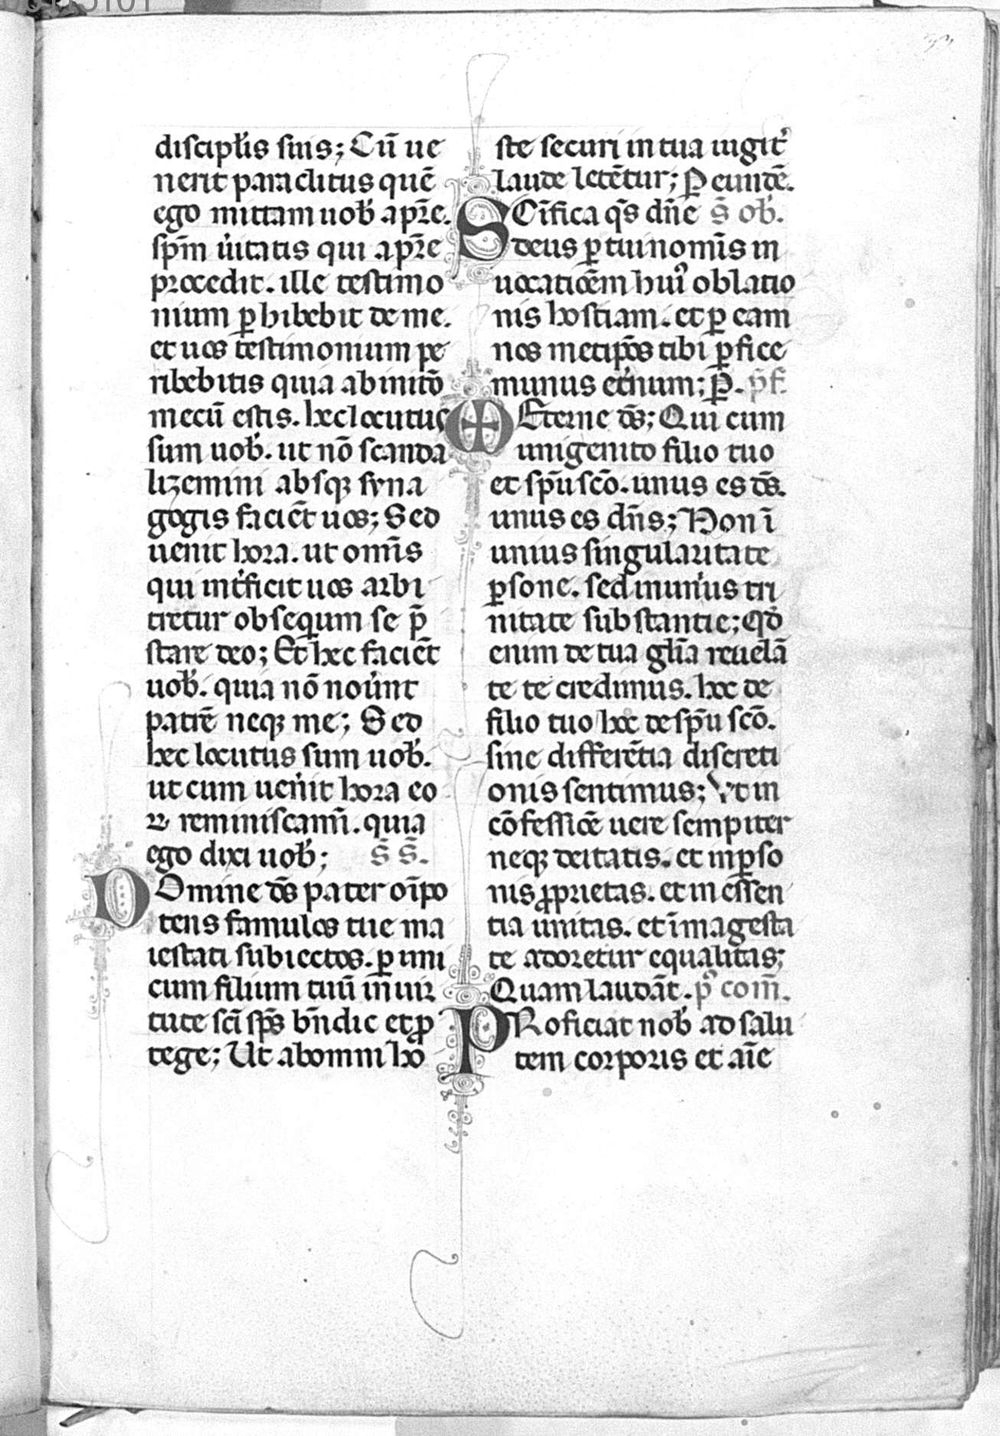 discipl̃is suis; Cũ ue
nerit paraclitus quẽ
ego mittam uob̃ a pr̃e.
sp̃m ũitatis qui a pr̃e
procedit. ille testimo
nium ꝑhibebit de me.
et uos testimonium pe
ribebitis quia ab initõ
mecũ estis. hec locutus
sum uob̃. ut nõ scanda
lizemini absqꝫ syna
gogis faciẽt uos; Sed
uenit hora. ut omñs
qui int̃ficit uos arbi
tretur obsequium se p̃
stare deo; Et hec faciẽt
uob̃. quia nõ nouẽnt
patrẽ neqꝫ me; Sed
hec locutus sum uob̃.
ut cum uen̾it hora eo
ꝝ reminiscam̃. quia
ego dixi uob̃; s̃ s̃.
DOmine ds̃ pater oĩpo
tens famulos tue ma
iestati subiectos. ꝑ uni
cum filium tuũ in uir
tute sc̃i sp̃s b̃ndic et ꝓ
tege; Ut ab omni ho
ste securi in tua iugit̾
laude letẽtur; P̃ eundẽ.
SCĩfica q̃s dñe s̃ ob̃.
deus ꝑ tui nomĩs in
uocatiõem huiꝰ oblatio
nis hostiam. et ꝑ eam
nos metip̃os tibi ꝑfice
munus et̾num; P̃. p̃f̃
Eterne ds̃; Qui cum
unigenito filio tuo
et sp̃u sc̃o. unus es ds̃.
unus es dñs; Non ĩ
unius singularitate
ꝑsone. sed in unius tri
nitate substantie; Qd̃
enim de tua gl̃ia reuelã
te te credimus. hoc de
filio tuo hoc de sp̃u sc̃o.
sine differẽtia discreti
onis sentimus; Vt in
cõfessiõe uere sempiter
neqꝫ deitatis. et in ꝑso
nis ꝓprietas. et in essen
tia unitas. et ĩ magesta
te adoretur equalitas;
Quam laudãt. pꝰ com̃.
PRoficiat nob̃ ad salu
tem corporis et aĩe